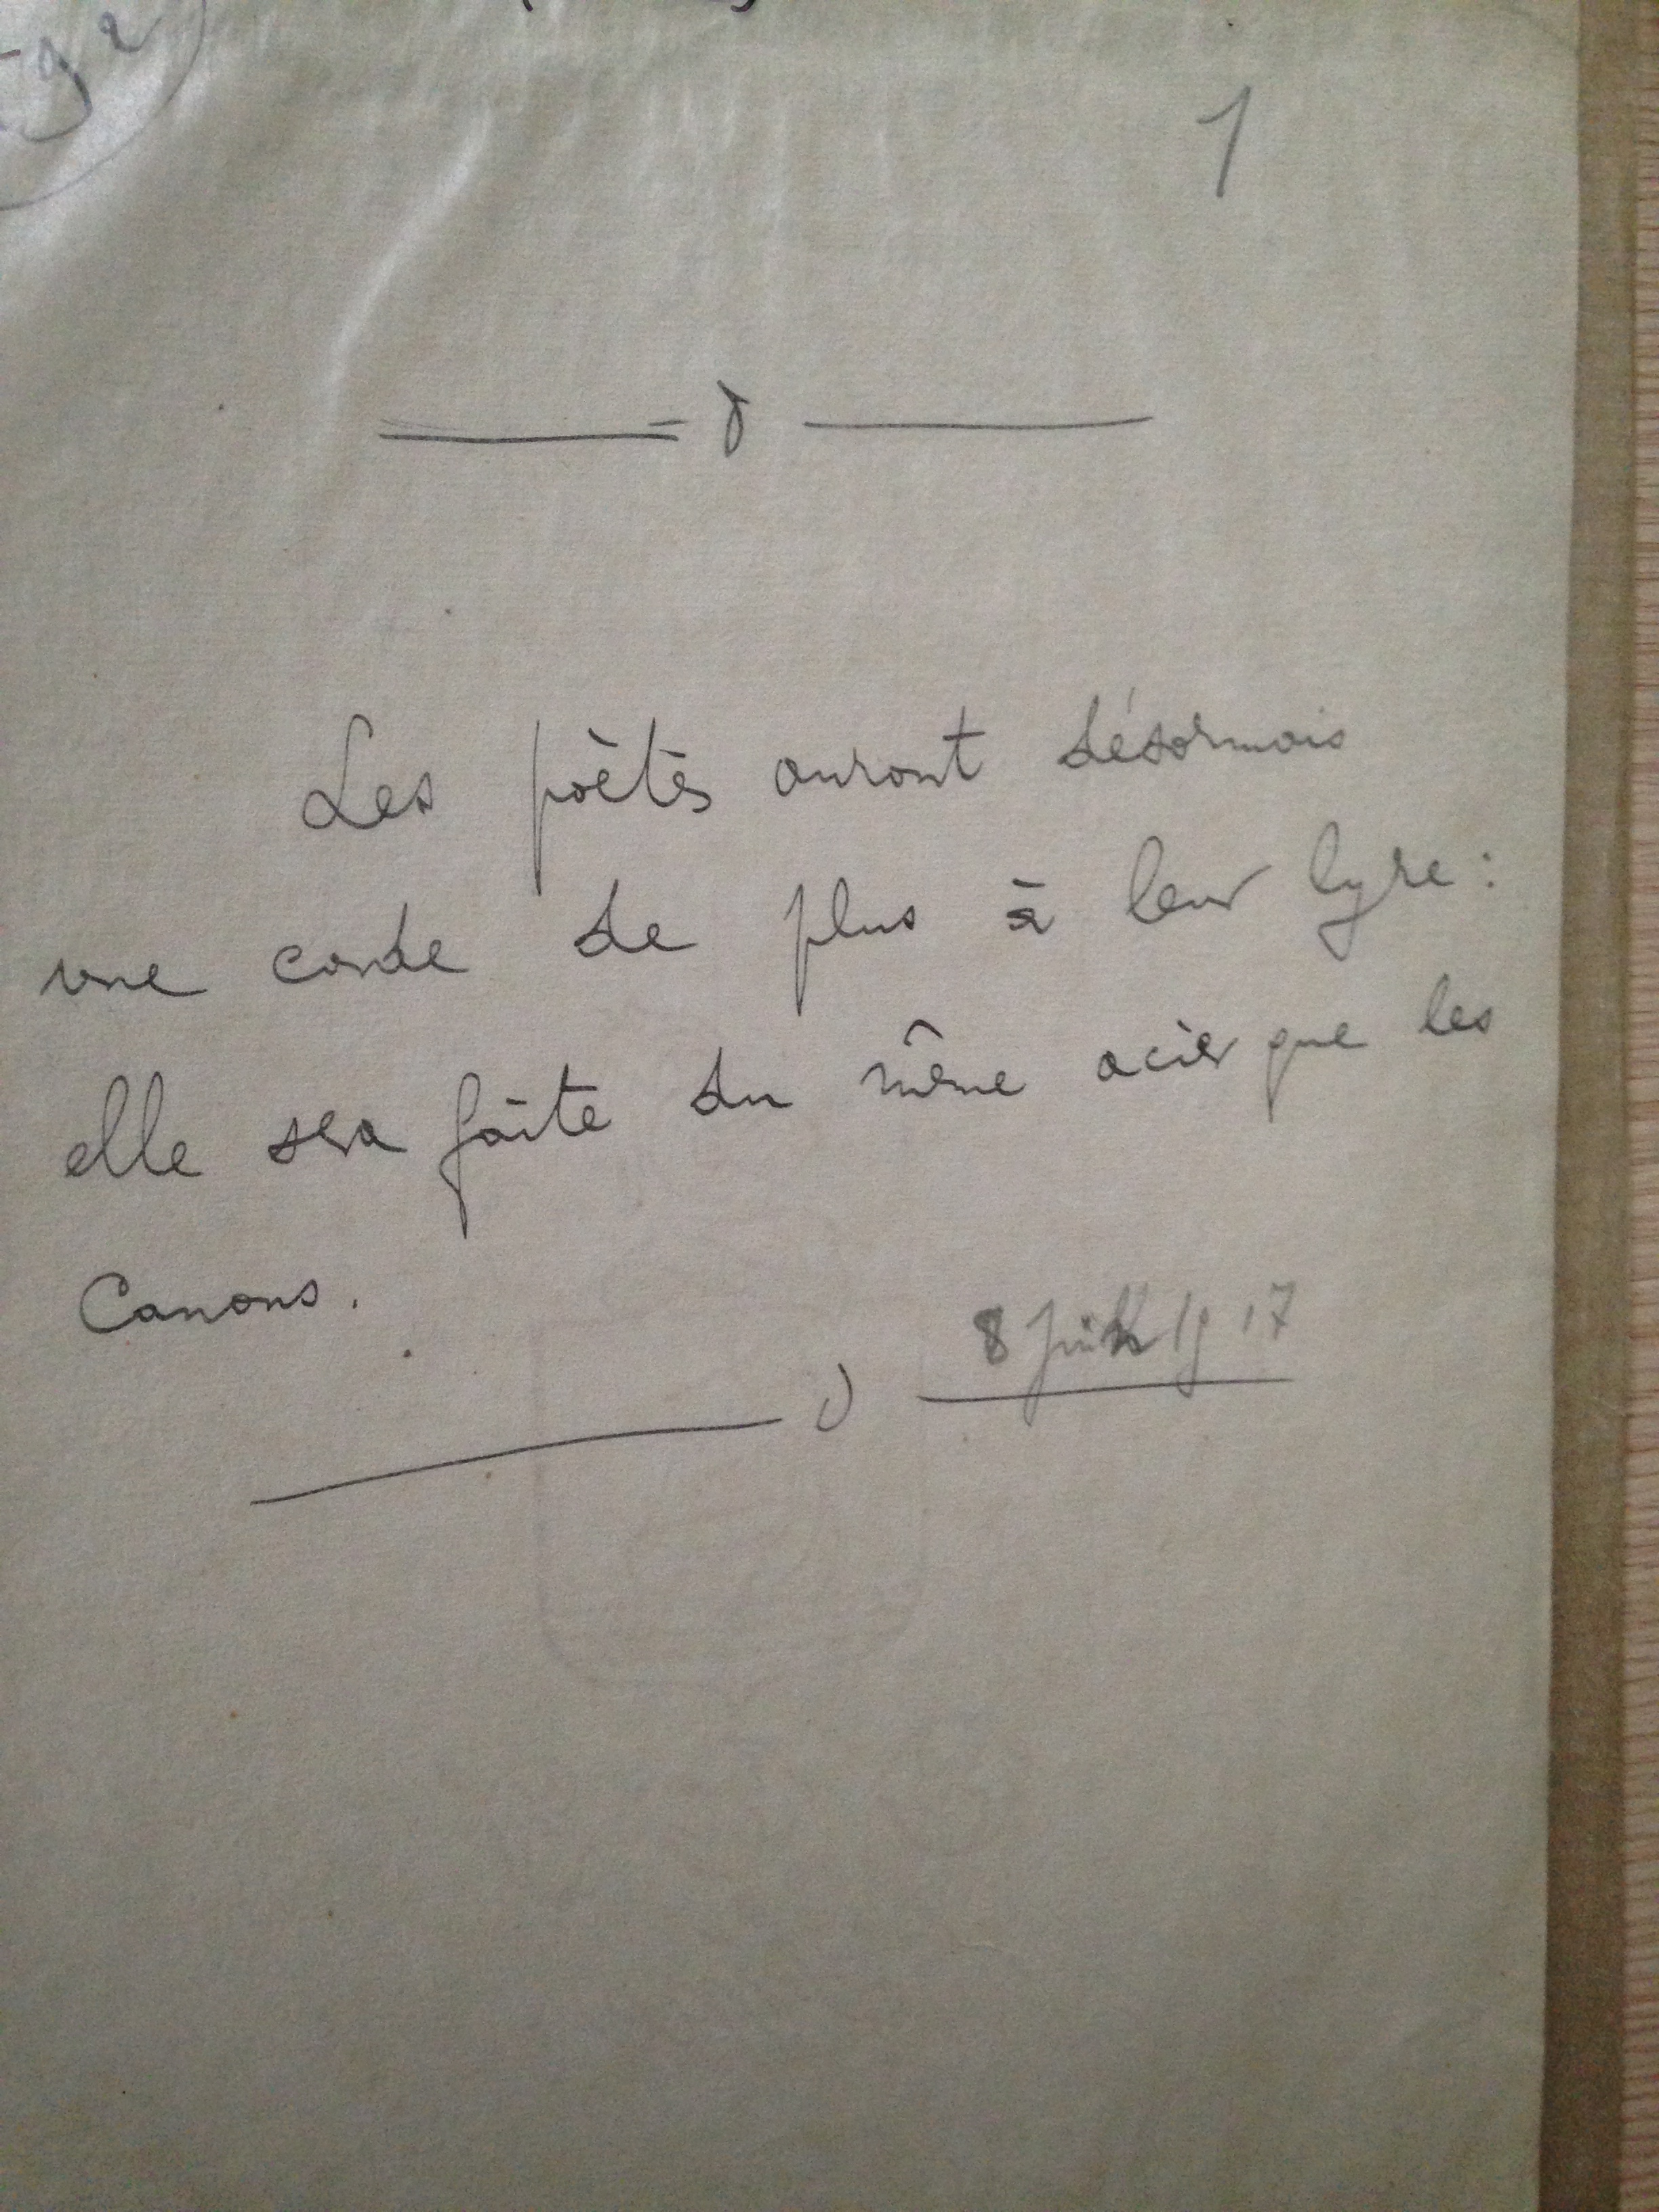 1
Les poëtes auront désormais
une corde de plus à leur lyre :
elle sera faite du même acier que les
Canons.
8 juillet 1917